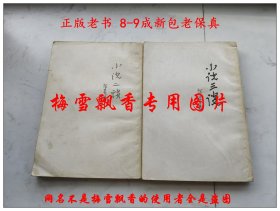 正版老书 8-9成新包老保真
小说二谈
小说三谈
梅雪飘香专用图片
网名不是梅雪飘香的使用者全是盗图